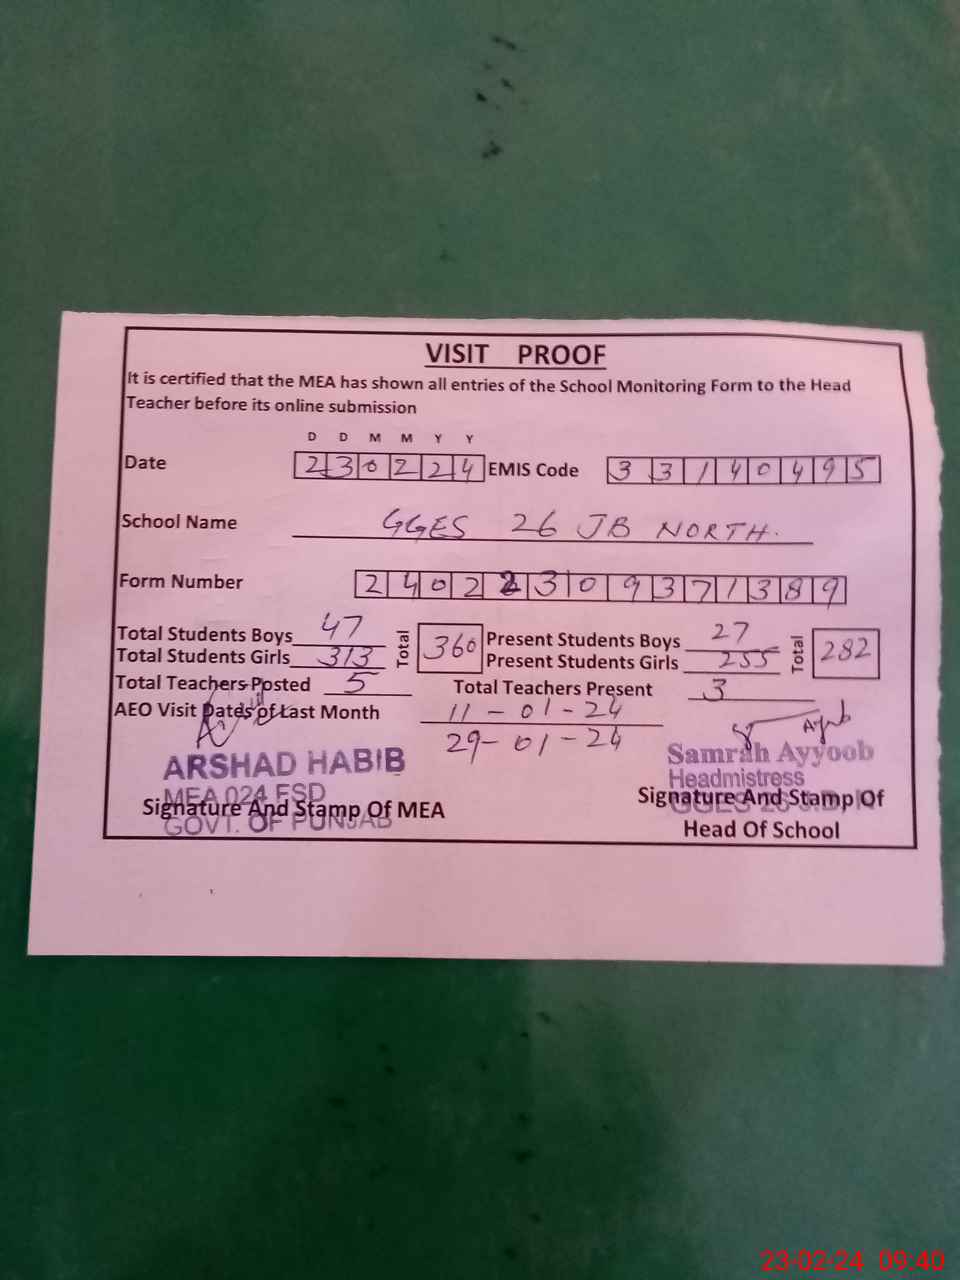 VISIT PROOF
It is certified that the MEA has shown all entries of the School Monitoring Form to the Head
Teacher before its online submission
D D M M Y Y
Date 230224 EMIS Code 33140495
School Name GGES 26 JB NORTH.
Form Number 24022309371389
Total Students Boys 47 Total 360 Present Students Boys 27 Total 282
Total Students Girls 313 Present Students Girls 255
Total Teachers Posted 5 Total Teachers Present 3
AEO Visit Dates of Last Month 11-01-24
29-01-24
ARSHAD HABIB
MEA 024 FSD
GOVT. OF PUNJAB
Signature And Stamp Of MEA
Samrah Ayyoob
Headmistress
Signature And Stamp Of
Head Of School
23-02-24 09:40